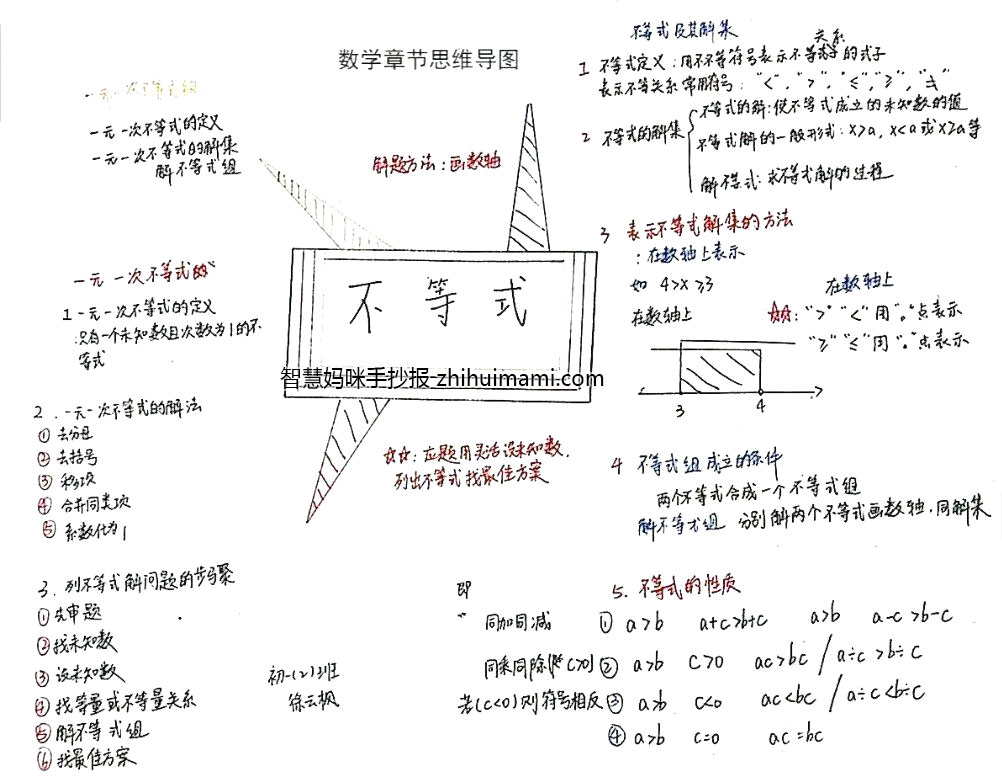 数学章节思维导图
一元一次不等式组
一元一次不等式的定义
一元一次不等式的解集
解不等式组
解题方法：画数轴
不等式
一元一次不等式的
1 一元一次不等式的定义
:只有一个未知数且次数为1的不
等式
智慧妈咪手抄报-zhihuimami.com
2. 一元一次不等式的解法
① 去分母
② 去括号
③ 移项
④ 合并同类项
⑤ 系数化为1
☆☆：应题用灵活设未知数,
列出不等式找最佳方案
3. 列不等式解问题的步骤
① 先审题
② 找未知数
③ 设未知数
④ 找等量或不等量关系
⑤ 解不等式组
⑥ 找最佳方案
初一(2)班
徐云枫
不等式及其解集
1 不等式定义：用不等符号表示不等关系的式子
表示不等关系常用符号："<", ">", "≤", "≥", "≠"
2 不等式的解集
不等式的解:使不等式成立的未知数的值
不等式解的一般形式：x>a, x<a 或 x≥a等
解不等式: 求不等式解的过程
3 表示不等式解集的方法
：在数轴上表示
如 4>x≥3
在数轴上
在数轴上
☆☆：">" "<" 用"。"点表示
"≥" "≤" 用"."点表示
3 4
4 不等式组成立的条件
两个不等式合成一个不等式组
解不等式组 分别解两个不等式画数轴,同解集
5. 不等式的性质
即
同加同减 ① a>b a+c>b+c a>b a-c>b-c
同乘同除(除c>0) ② a>b c>0 ac>bc / a÷c>b÷c
若(c<0)则符号相反 ③ a>b c<0 ac<bc / a÷c<b÷c
④ a>b c=0 ac=bc